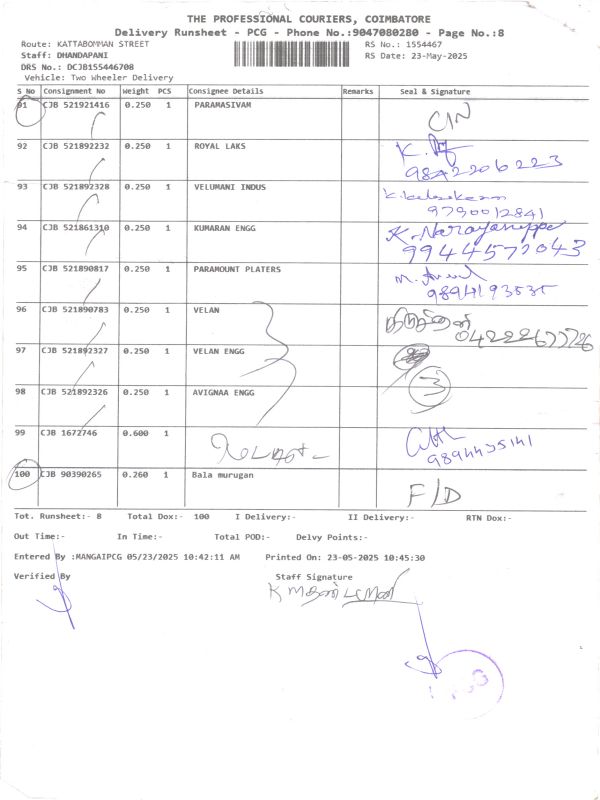 THE PROFESSIONAL COURIERS, COIMBATORE
Delivery Runsheet - PCG - Phone No.:9047080280 - Page No.:8
Route: KATTABOMMAN STREET RS No.: 1554467
Staff: DHANDAPANI RS Date: 23-May-2025
DRS No.: DCJB155446708
Vehicle: Two Wheeler Delivery
S No Consignment No Weight PCS Consignee Details Remarks Seal & Signature
91 CJB 521921416 0.250 1 PARAMASIVAM
92 CJB 521892232 0.250 1 ROYAL LAKS
9842206223
93 CJB 521892328 0.250 1 VELUMANI INDUS
9790012841
94 CJB 521861310 0.250 1 KUMARAN ENGG K. Narayanappa
9944572043
95 CJB 521890817 0.250 1 PARAMOUNT PLATERS
96 CJB 521890783 0.250 1 VELAN
97 CJB 521892327 0.250 1 VELAN ENGG
98 CJB 521892326 0.250 1 AVIGNAA ENGG 3
99 CJB 1672746 0.600 1
100 CJB 90390265 0.260 1 Bala murugan F/D
Tot. Runsheet:- 8 Total Dox:- 100 I Delivery:- II Delivery:- RTN Dox:-
Out Time:- In Time:- Total POD:- Delvy Points:-
Entered By :MANGAIPCG 05/23/2025 10:42:11 AM Printed On: 23-05-2025 10:45:30
Verified By Staff Signature